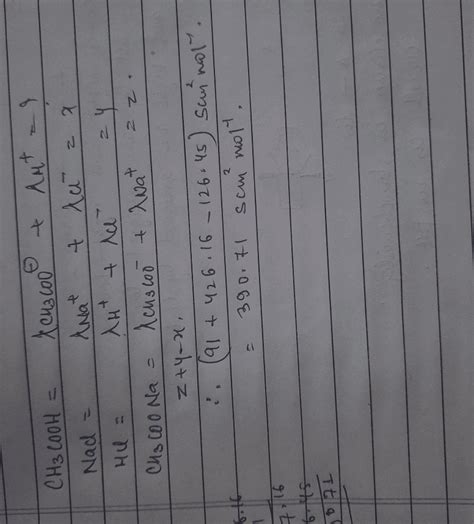 CH3COOH = λCH3COO⊖ + λH⁺ = ?
Nacl = λNa⁺ + λcl⁻ = x
Hcl = λH⁺ + λcl⁻ = y
CH3COONa = λCH3COO⁻ + λNa⁺ = z.
z+y-x.
∴ (91 + 426.16 - 126.45) Scm² mol⁻¹.
= 390.71 Scm² mol⁻¹.
.16
6.45
0.71